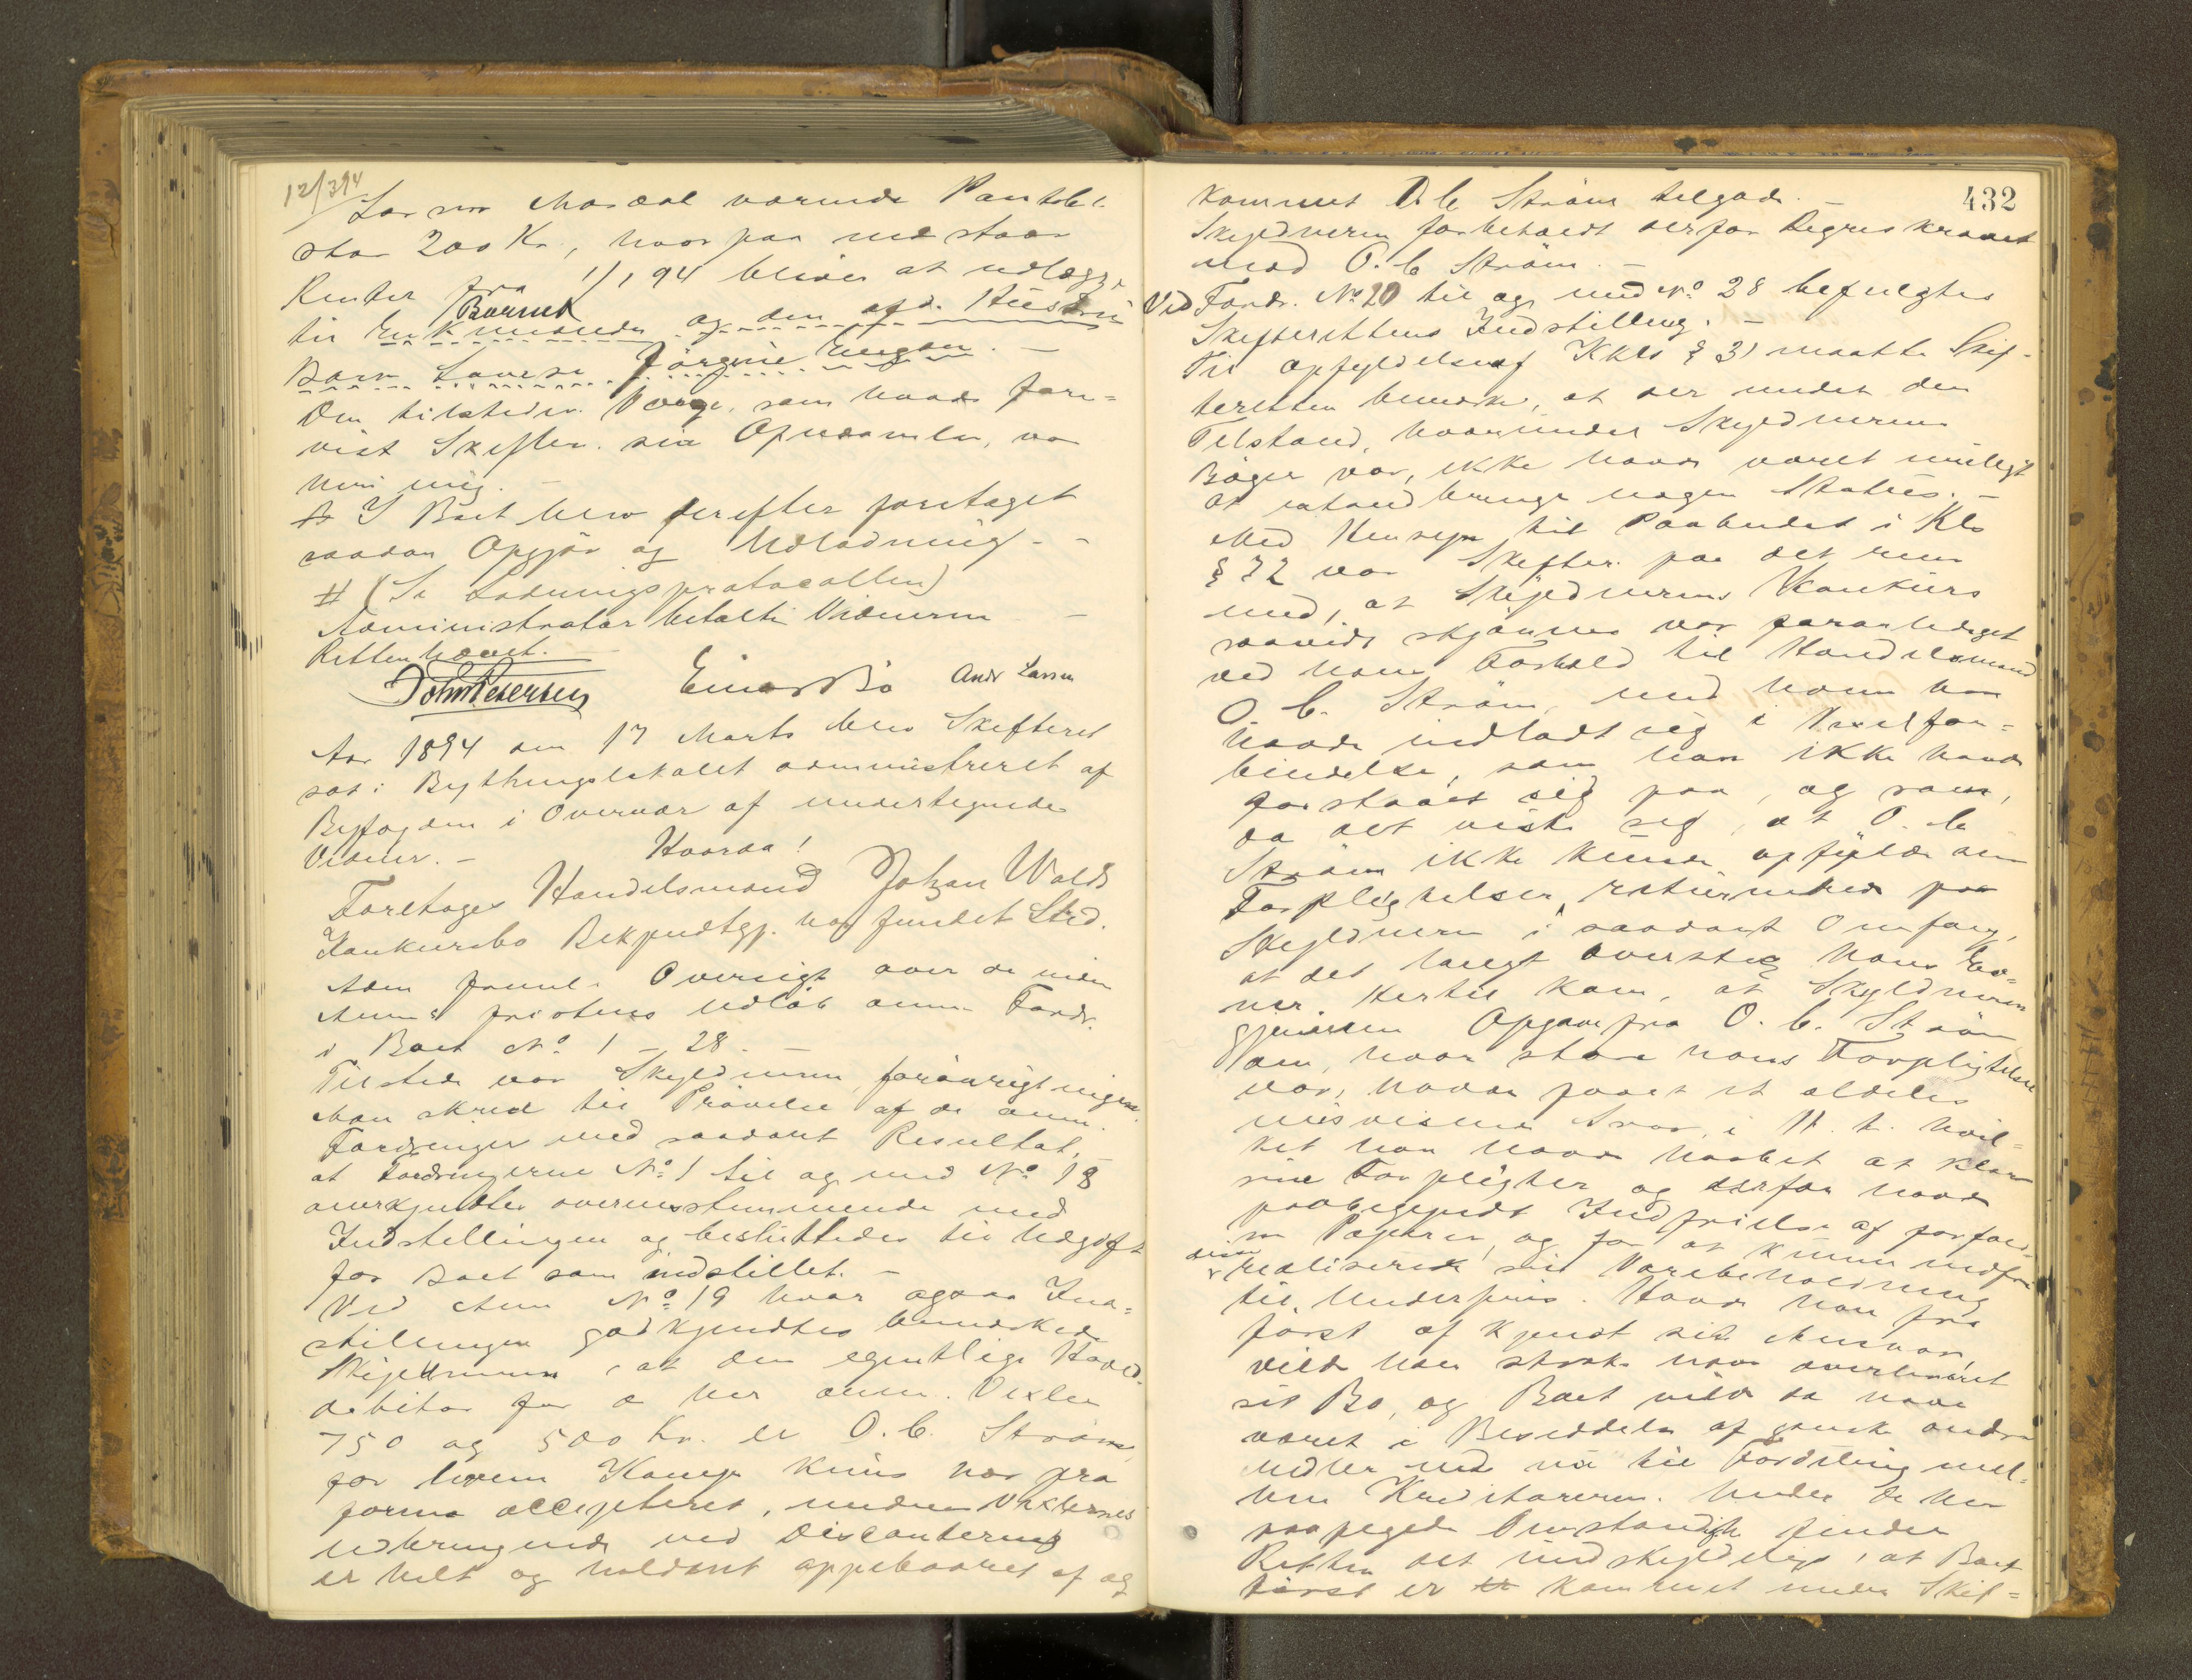 12/3 94
Lars Mosdal værende Pantobl.
stor 200 Kr., hvorpaa indestaar
Renter fra 1/1 94 bliver at udlægge
Barnet
til Enkemanden og den afd. Hustrus
Barn Lovise Jörgine
Den tilstedev. Værge, som havde fore=
vist Skifter. sin Opnævnelse, var
enig. –
I Boet blev derefter foretaget
saadan Opgjör og Udlodning –
# (Se Lodningsprotocollen)
Administrator betalte Vidnerne –
Retten hævet. –
John Petersen Einar Bö Andr Larsen
Aar 1894 den 17 Marts blev Skifteret
sat i Bythingslokalet administreret af
Byfogden i Overvær af undertegnede
Vidner. –
Hvorda!
Foretoges Handelsmand Johan Wolds
Konkursbo Bekjendtgj. har fundet Sted.
Adm freml. Oversigt over de inden
Anm.s fristens Udlöb anm. Fordr.
i Boet No. 1 – 28. –
Tilstede var Skyldneren, forövrigt ingen.
Man skred til Prövelse af de anm.
Fordringer med saadant Resultat,
at Fordringerne No. 1 til og med No. 18
anerkjendtes overensstemmende med
Indstillingen og besluttedes til Udgift
for Boet som indstillet. –
Ved Anm No. 19 hvor ogsaa Ind=
stillingen godkjendtes bemærkede
Skyldneren, at den egentlige Hoved-
debitor for de her anm. Vexler
750 og 500 Kr. er O. C. Ström,
for hvem Komp. kuns har pro
forma accepteret, medens Vexlernes
Udbringende ved Discontering
er helt og holdent oppebaaret af og
432
kommet O. C. Ström tilgode. –
Skyldneren forbeholdt derfor Regreskravet
mod O. C. Ström. –
Ved Fordr. No. 20 til og med No. 28 befulgtes
Skifterettens Indstilling. –
Til Opfyldelse af Kkls § 31 maatte Skif-
teretten bemærke, at der under den
Tilstand, hvorunder Skyldnerens
Böger var, ikke havde været muligt
at istandbringe nogen Status. –
Med Hensyn til Paabudet i Kls
§ 72 var Skifter. paa det rene
med, at Skyldnerens Konkurs
saavidt skjönnes var foranlediget
ved hans Forhold til Handelsmand
O. C. Ström, med hvem han
havde indladt sig i Vexelfor=
bindelse, som han ikke havde
forstaaet sig paa, og som,
da det viste sig, at O. C.
Ström ikke kunde opfylde sine
Forpligtelser, returnerede paa
Skyldneren i saadant Omfang,
at det langt oversteg hans Ev=
ner. Hertil kom, at Skyldneren
gjennem Opgave fra O. C. Ström
om, hvor store hans Forpligtelser
var, havde faaet et aldeles
misvisende Svar, i H. t. hvil=
ket han havde haabet at klare
sine Forpligter og derfor havde
paabegyndt Indfrielse af forfald=
ne Papirer, og for at kunne indfri
disse realiseret sin Varebeholdning
til Underpris. Havde han fra
först af kjendt sit Ansvar,
vilde han strax have overleveret
sit Bo, og Boet vilde da have
været i Besiddelse af ganske andre
Midler end nu til Fordeling mel=
lem Kreditorerne. Under de her
paapegede Omstændigh finder
Retten det undskyldeligt, at Boet
först er kommet under Skif=